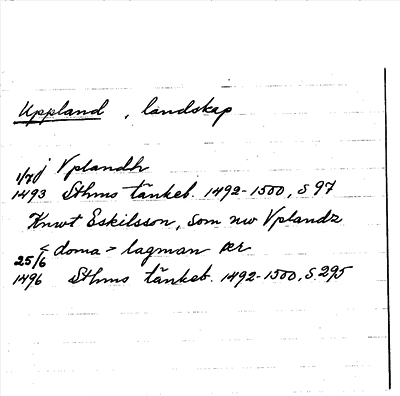 Uppland, landskap
j Vplandh
1/7 1493 Sthms tänkeb. 1492-1500, S 97
Knwt Eskilsson, som nw Vplandz
doma = lagman ær
25/6 1496 Sthms tänkeb. 1492-1500, S. 295